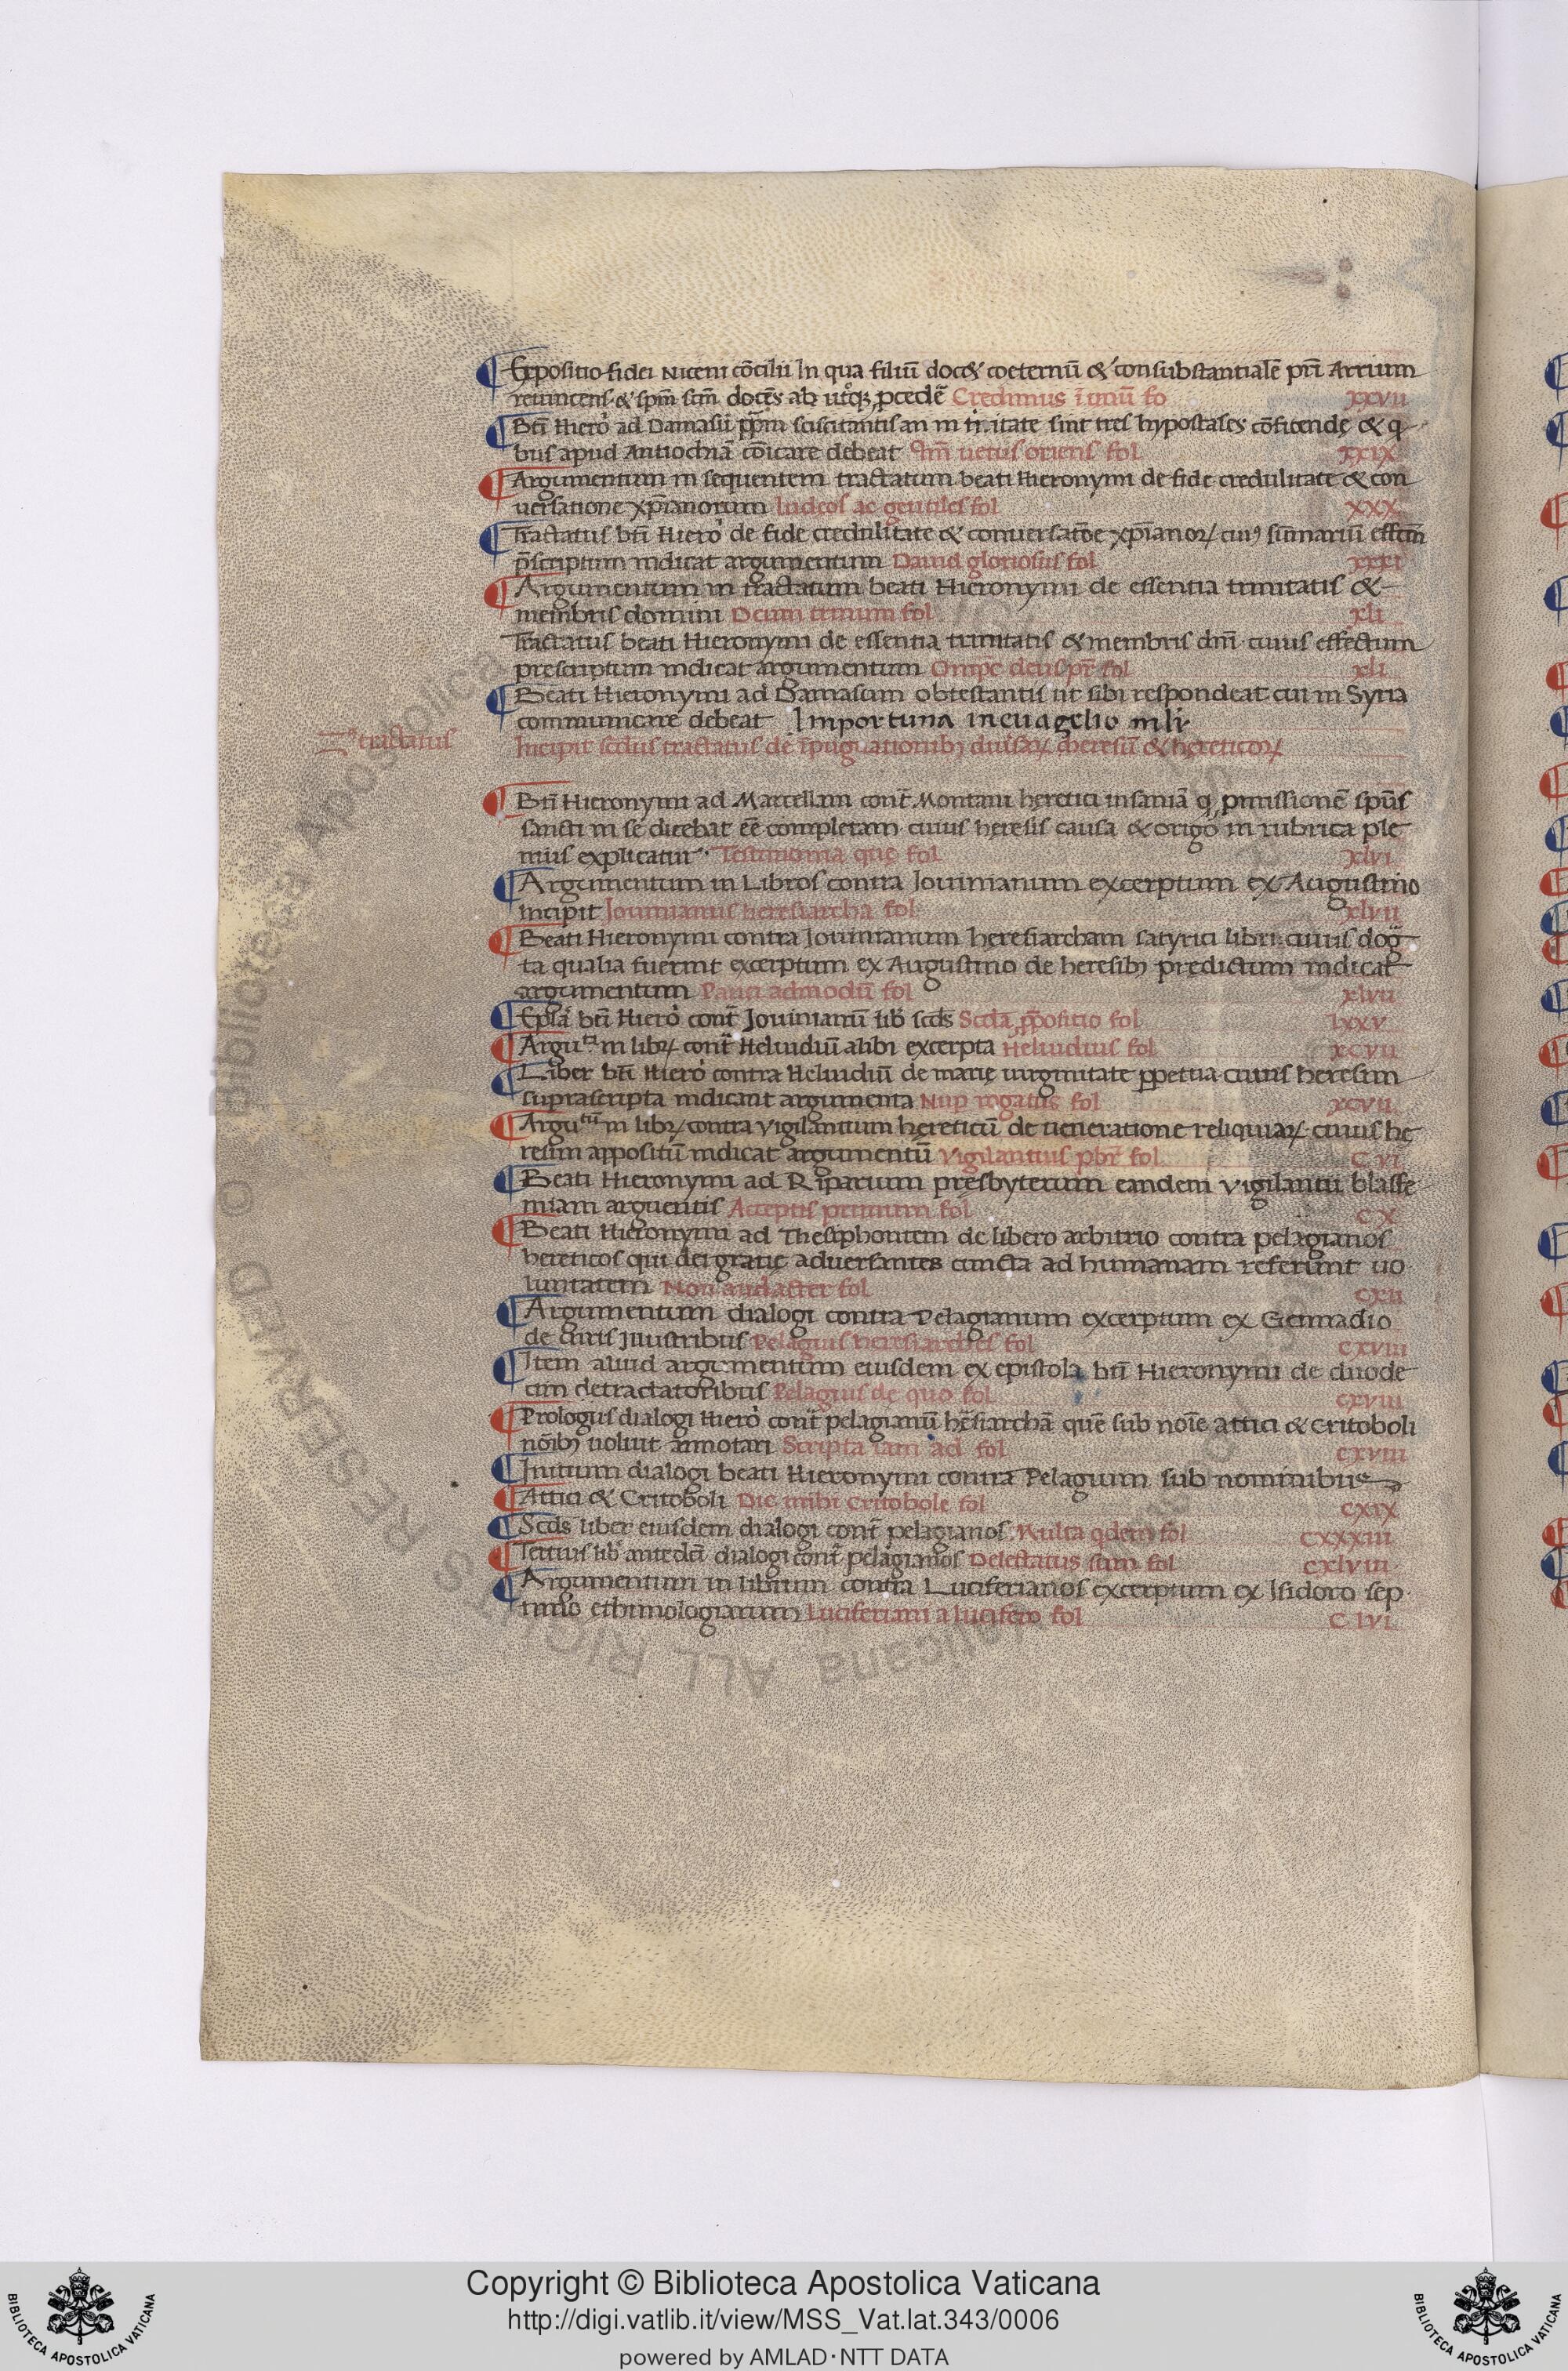 Expositio fidei Niceni cōcilii In qua filiū docꝫ coeternū & consubstantialē prı̄ Arrium
reuincens & spm̄ scm̄ docēs ab utroq; ꝓcedē Credimus ī unū fo xxvii
Btī Hiero ad Damasū ꝑꝑm sciscitantis an in trinitate sint tres hypostases cōfitendę & q
bus apud Antiochiā cōicare debeat Qm̄ uetus oriens fol xxix
Argumentum in sequentem tractatum beati Hieronymi de fide credulitate & con
uersatione xp̄ianorum Iudeos ac gentiles fol xxx
Tractatus btī Hiero de fide credulitate & conuersatōe xp̄ianoꝝ cuiꝰ sūmariū effectū
p̄scriptum indicat argumentum Dauid gloriosus fol xxxi
Argumentum in tractatum beati Hieronymi de essentia trinitatis &
membris domini Deum trinum fol xli
Tractatus beati Hieronymi de essentia trinitatis & membris dn̄i cuius effectum
prescriptum indicat argumentum Omp̄s deus pr̄ fol xli
Beati Hieronymi ad Damasum obtestantis ut sibi respondeat cui in Syria
communicare debeat Importuna in euāgelio mli
2ꝰ tractatus
Incipit scdus tractatus de īpugnationibꝫ diuersaꝝ heresū & hereticoꝝ
Btī Hieronymi ad Marcellam cont̄ Montani hęretici insaniā q ꝓmissionē spūs
sancti in se dicebat eē completam cuius heresis causa & origo in rubrica ple
nius explicatur Testimonia quę fol xlvi
Argumentum in Libros contra Iouinianum excerptum ex Augustino
incipit Iouinianus heresiarcha fol xlvii
Beati Hieronymi contra Iouinianum heresiarcham satyrici libri cuius dog
ta qualia fuerint excerptum ex Augustino de heresibꝫ prędictum indicat
argumentum Pauci admodū fol xlvii
Epla btī Hiero cont̄ Iouinianū lib scds Scda ꝓpositio fol lxxv
Argutꝫ in libꝝ cont̄ Heluidiū alibi excerpta Heluidius fol xcvii
Liber btī Hiero contra Heluidiū de marię uirginitate ꝑpetua cuius heresim
suprascripta indicant argumenta Nuꝑ rogatus fol xcvii
Argutū in libꝝ contra Vigilantium hereticū de ueneratione reliquiaꝝ cuius hę
resim appositū indicat argumentū Vigilantius pbr̄ fol c vi
Beati Hieronymi ad Riparium presbyterum eandem Vigilantii blasfe
miam arguentis Acceptis primum fol c x
Beati Hieronymi ad Thesiphontem de libero arbitrio contra pelagianos
hereticos qui dei gratię aduersantes cuncta ad humanam referunt uo
luntatem Non audacter fol cxii
Argumentum dialogi contra Pelagianum excerptum ex Gennadio
de uiris illustribus Pelagius heresiarches fol cxviii
Item aliud argumentum eiusdem ex epistola btī Hieronymi de duode
cim detractatoribus Pelagius de quo fol cxviii
Prologus dialogi Hiero cont̄ pelagianū hęresiarchā quē sub noīe Attici & Critoboli
noībꝫ uoluit annotari Scripta iam ad fol cxviii
Initium dialogi beati Hieronymi contra Pelagium sub nominibus
Attici & Critoboli Dic mihi Critobole fol cxix
Scds liber eiusdem dialogi cont̄ pelagianos Multa qdem fol cxxxiii
Tertius lib antedcī dialogi cont̄ pelagianos Delectatus sum fol cxlviii
Argumentum in librum contra Luciferianos excerptum ex Isidoro sep
timo ethimologiarum Luciferiani a lucifero fol c lvi
Copyright © Biblioteca Apostolica Vaticana
http://digi.vatlib.it/view/MSS_Vat.lat.343/0006
powered by AMLAD·NTT DATA
BIBLIOTECA APOSTOLICA VATICANA
BIBLIOTECA APOSTOLICA VATICANA